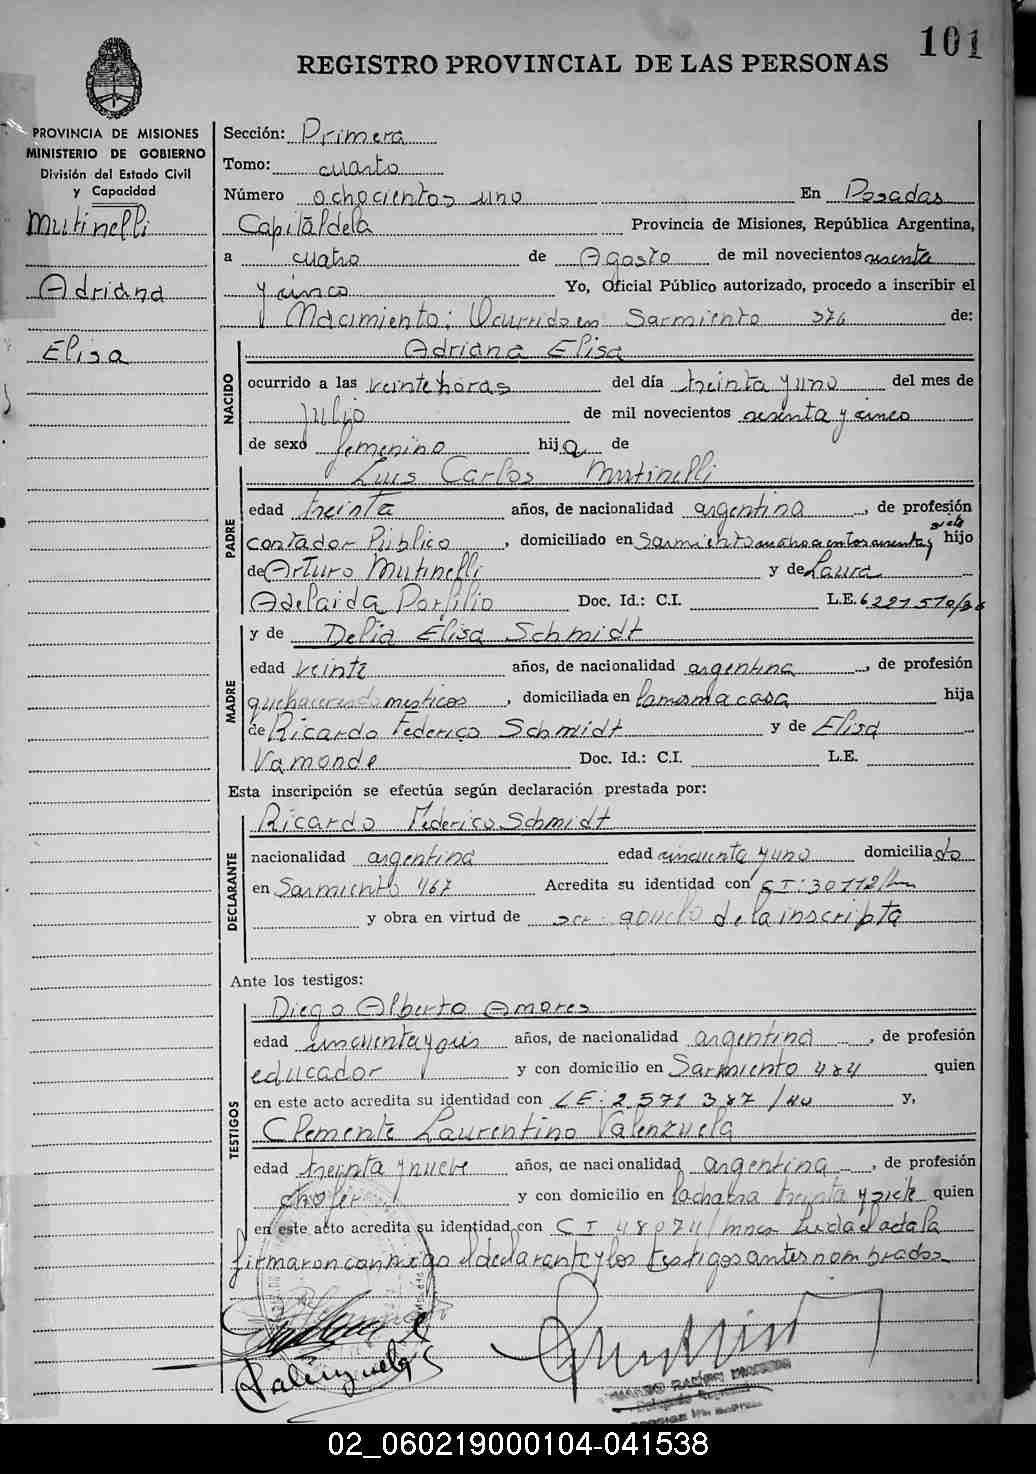 101
REGISTRO PROVINCIAL DE LAS PERSONAS
PROVINCIA DE MISIONES
MINISTERIO DE GOBIERNO
División del Estado Civil
y Capacidad
Mutinelli
Adriana
Elisa
Sección: Primera
Tomo: cuarto
Número ochocientos uno En Posadas
Capital de la Provincia de Misiones, República Argentina,
a cuatro de Agosto de mil novecientos sesenta
y cinco Yo, Oficial Público autorizado, procedo a inscribir el
Nacimiento: Ocurrido en Sarmiento 376 de:
NACIDO
Adriana Elisa
ocurrido a las veinte horas del día treinta y uno del mes de
Julio de mil novecientos sesenta y cinco
de sexo femenino hija de
PADRE
Luis Carlos Mutinelli
edad treinta años, de nacionalidad argentina, de profesión
Contador Público, domiciliado en Sarmiento cuatrocientos sesenta y siete hijo
de Arturo Mutinelli y de Laura
Adelaida Porfilio Doc. Id.: C.I. L.E. 6221570/
MADRE
y de Delia Elisa Schmidt
edad veinte años, de nacionalidad argentina, de profesión
quehaceres domesticos, domiciliada en la misma casa hija
de Ricardo Federico Schmidt y de Elisa
Vamonde Doc. Id.: C.I. L.E.
Esta inscripción se efectúa según declaración prestada por:
DECLARANTE
Ricardo Federico Schmidt
nacionalidad argentina edad cincuenta y uno domiciliado
en Sarmiento 467 Acredita su identidad con CI: 30112/
y obra en virtud de ser: abuelo de la inscripta
Ante los testigos:
TESTIGOS
Diego Alberto Amores
edad cincuenta y años, de nacionalidad argentina, de profesión
educador y con domicilio en Sarmiento 484 quien
en este acto acredita su identidad con LE: 2571387/ y,
Clemente Laurentino Valenzuela
edad treinta y nueve años, de nacionalidad argentina, de profesión
chofer y con domicilio en la chacra treinta y siete quien
en este acto acredita su identidad con CI 48074/mnes Leida el acta la
firmaron conmigo el declarante y los testigos antes nombrados
Valenzuela
02_060219000104-041538